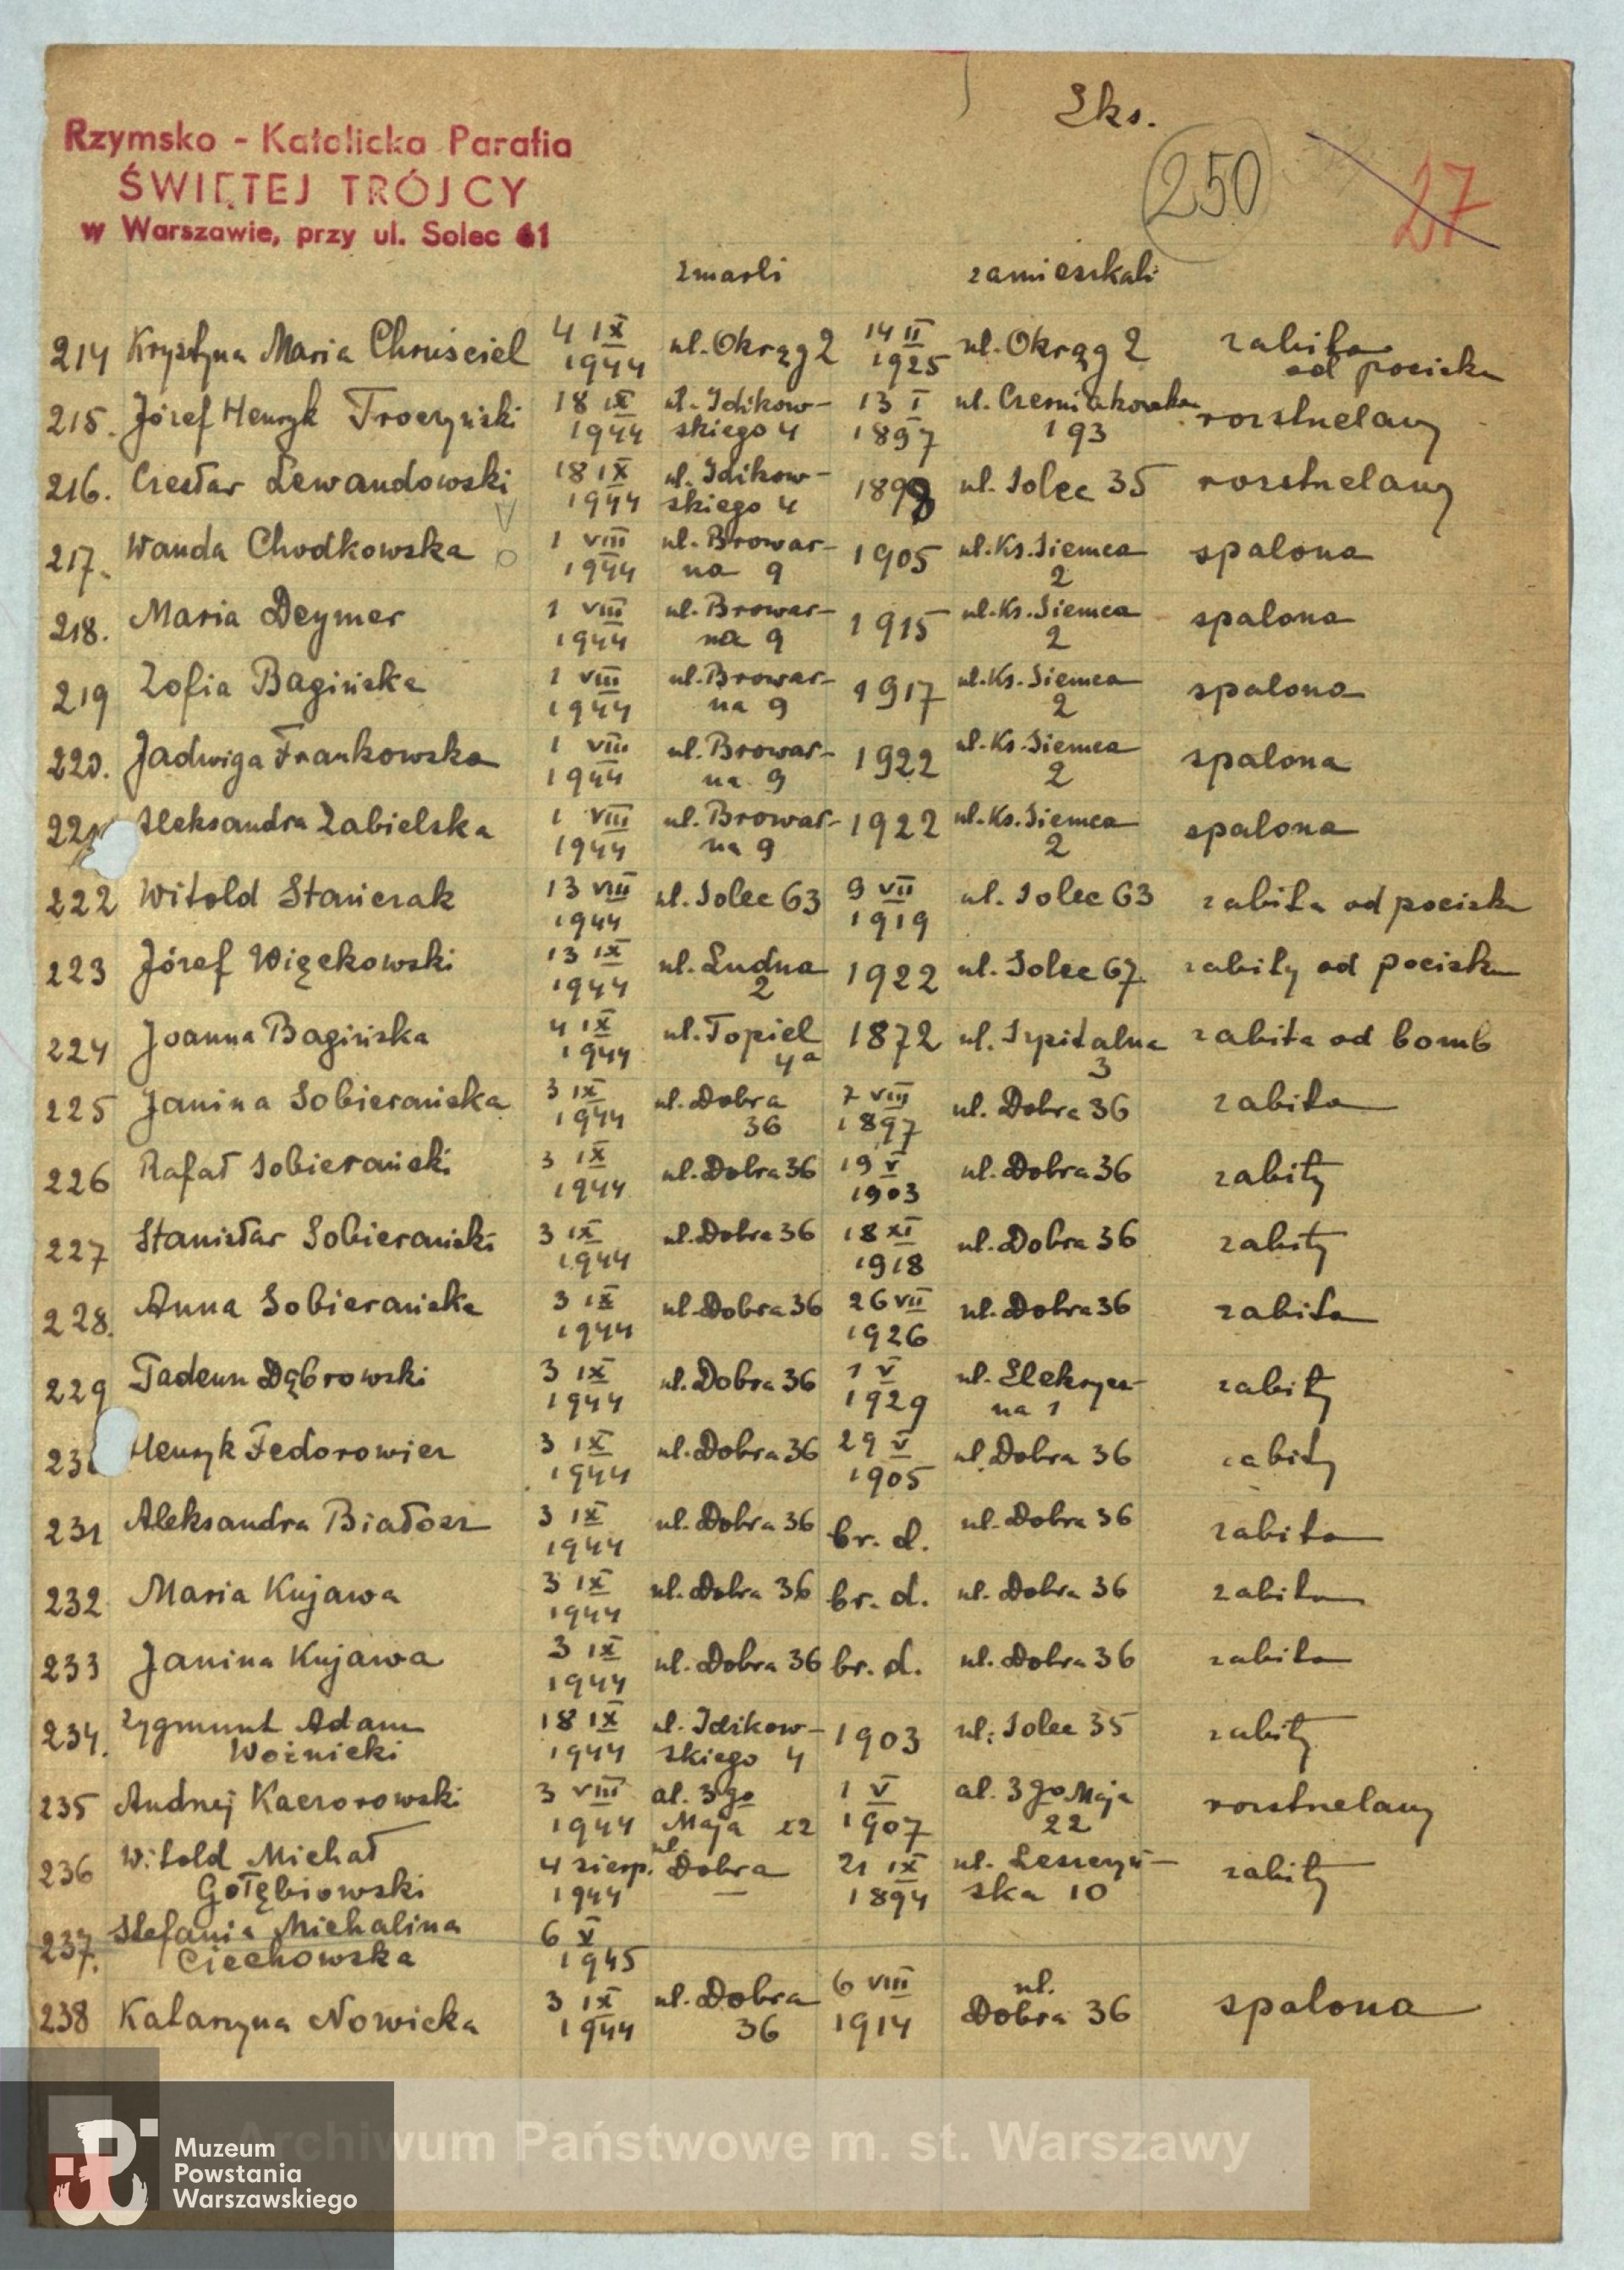 Eks.
Rzymsko - Katolicka Parafia
ŚWIĘTEJ TRÓJCY
w Warszawie, przy ul. Solec 61
250
27
zmarli zamieszkali
214 Krystyna Maria Chruściel 4 IX 1944 ul. Okrąg 2 14 II 1925 ul. Okrąg 2 zabita od pocisku
215. Józef Henryk Troczyński 18 IX 1944 ul. Idikowskiego 4 13 I 1897 ul. Czerniakowska 193 rozstrzelany
216. Czesław Lewandowski 18 IX 1944 ul. Idikowskiego 4 1898 ul. Solec 35 rozstrzelany
217. Wanda Chodkowska 1 VIII 1944 ul. Browarna 9 1905 ul. Ks. Siemca 2 spalona
218. Maria Deymer 1 VIII 1944 ul. Browarna 9 1915 ul. Ks. Siemca 2 spalona
219 Zofia Bagińska 1 VIII 1944 ul. Browarna 9 1917 ul. Ks. Siemca 2 spalona
220. Jadwiga Frankowska 1 VIII 1944 ul. Browarna 9 1922 ul. Ks. Siemca 2 spalona
221 Aleksandra Zabielska 1 VIII 1944 ul. Browarna 9 1922 ul. Ks. Siemca 2 spalona
222 Witold Stanierak 13 VIII 1944 ul. Solec 63 9 VII 1919 ul. Solec 63 zabita od pocisku
223 Józef Więckowski 13 IX 1944 ul. Ludna 2 1922 ul. Solec 67 zabity od pocisku
224 Joanna Bagińska 4 IX 1944 ul. Topiel 4a 1872 ul. Szpitalna 3 zabita od bomb
225 Janina Sobierańska 3 IX 1944 ul. Dobra 36 7 VIII 1897 ul. Dobra 36 zabita
226 Rafał Sobierański 3 IX 1944 ul. Dobra 36 19 V 1903 ul. Dobra 36 zabity
227 Stanisław Sobierański 3 IX 1944 ul. Dobra 36 18 XI 1918 ul. Dobra 36 zabity
228. Anna Sobierańska 3 IX 1944 ul. Dobra 36 26 VII 1926 ul. Dobra 36 zabita
229 Tadeusz Dąbrowski 3 IX 1944 ul. Dobra 36 1 V 1929 ul. Elekryczna 1 zabity
23 Henryk Fedorowicz 3 IX 1944 ul. Dobra 36 29 V 1905 ul. Dobra 36 zabity
231 Aleksandra Białosz 3 IX 1944 ul. Dobra 36 br. d. ul. Dobra 36 zabita
232 Maria Kujawa 3 IX 1944 ul. Dobra 36 br. d. ul. Dobra 36 zabita
233 Janina Kujawa 3 IX 1944 ul. Dobra 36 br. d. ul. Dobra 36 zabita
234. Zygmunt Adam Woźnicki 18 IX 1944 ul. Idzikowskiego 4 1903 ul. Solec 35 zabity
235 Andrzej Kaczorowski 3 VIII 1944 al. 3 go Maja 22 1 V 1907 al. 3 go Maja 22 rozstrzelany
236 Witold Michał Gołębiowski 4 sierp. 1944 ul. Dobra — 21 IX 1894 ul. Leszczyńska 10 zabity
237. Stefania Michalina Ciechowska 6 V 1945
238 Katarzyna Nowicka 3 IX 1944 ul. Dobra 36 6 VIII 1914 ul. Dobra 36 spalona
Archiwum Państwowe m. st. Warszawy
Muzeum
Powstania
Warszawskiego